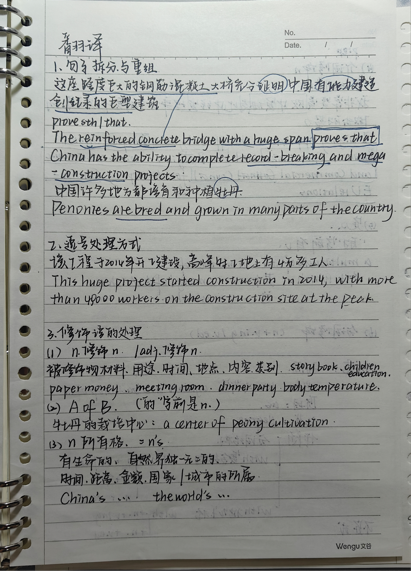 No.
Date. / /
翻译
1、句子拆分与重组
这座跨度巨大的钢筋混凝土大桥充分证明中国有能力建造
创纪录的巨型建筑
prove sth / that.
The reinforced concrete bridge with a huge span proves that
China has the ability to complete record-breaking and mega
-construction projects.
中国许多地方都培育和种植牡丹.
Penonies are bred and grown in many parts of the country.
2、逗号处理方式
该工程于2014年开工建设,高峰时工地上有4万多工人
This huge project started construction in 2014, with more
than 40000 workers on the construction site at the peak.
3.修饰语的处理
(1) n.修饰n. / adj.修饰n.
被修饰物材料.用途.时间.地点.内容.类别. story book. children education.
paper money. meeting room. dinner party. body temperature.
(2) A of B. ("的"字前是n.)
牡丹的栽培中心: a center of peony cultivation.
(3) n 所有格. = n's
有生命的. 自然界独一无二的.
时间.距离.金钱.国家/城市的所属
China's ... the world's ...
Wengu文谷